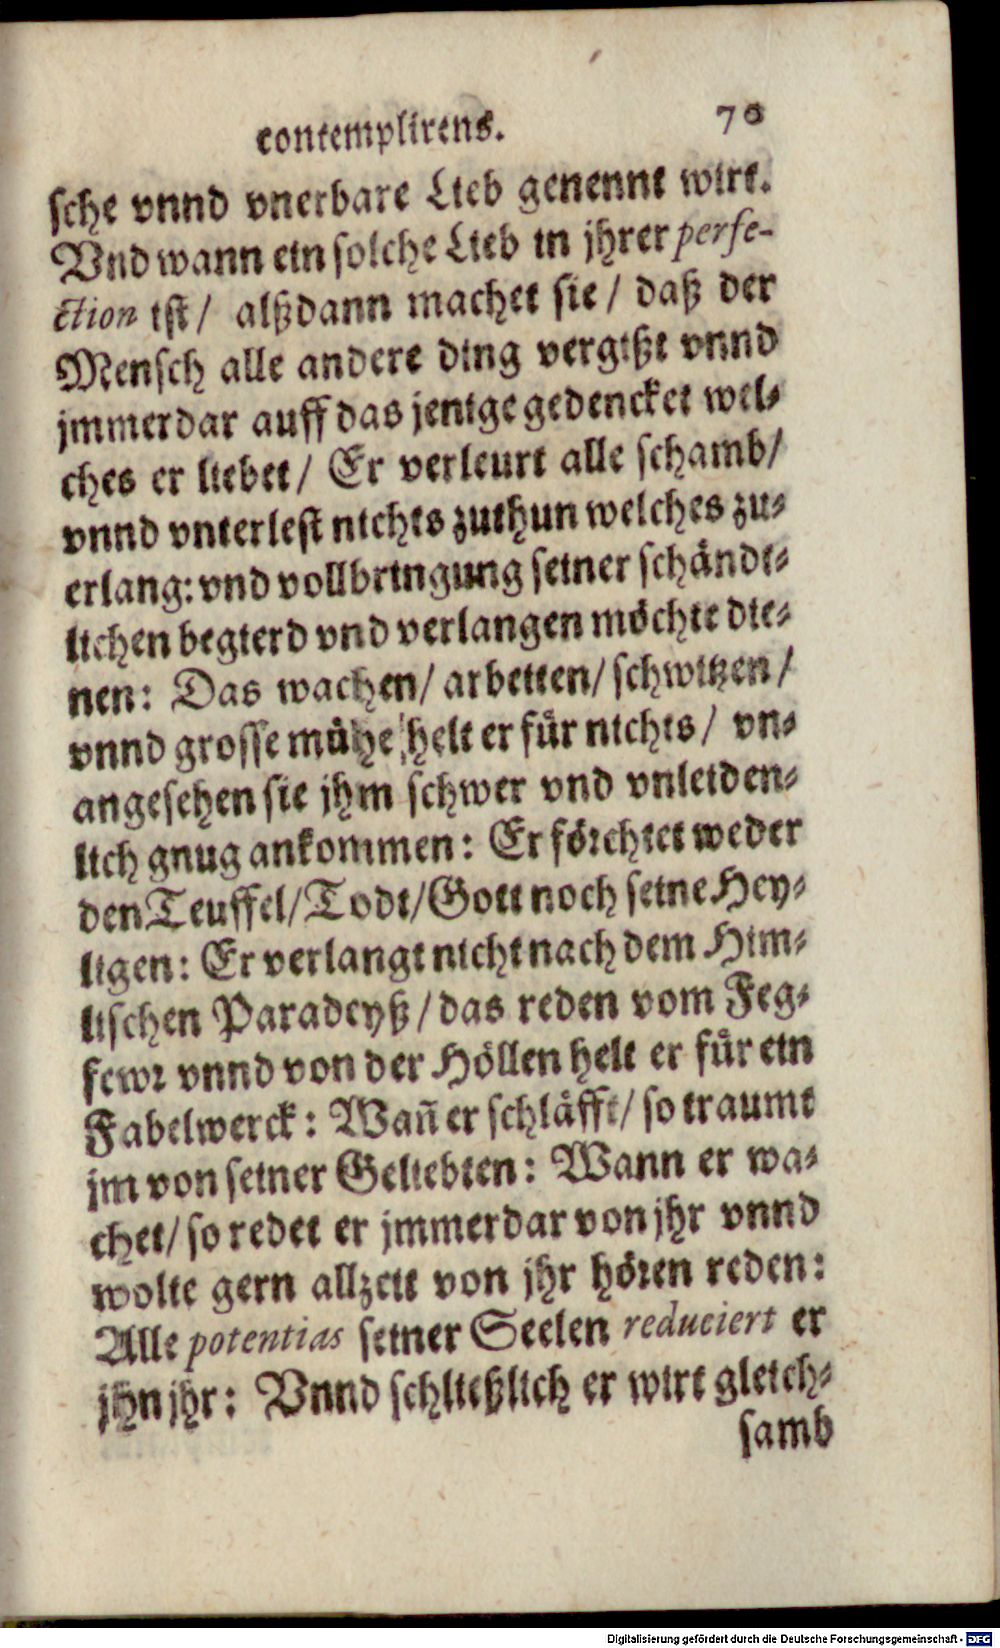 contemplirens. 70
sche vnnd vnerbare Lieb genennt wirt.
Vnd wann ein solche Lieb in jhrer perfe-
ction ist / alßdann machet sie / daß der
Mensch alle andere ding vergißt vnnd
jmmerdar auff das jenige gedencket wel-
ches er liebet / Er verleurt alle schamb /
vnnd vnterlest nichts zuthun welches zu-
erlang: vnd vollbringung seiner schändt-
lichen begierd vnd verlangen möchte die-
nen: Das wachen / arbeiten / schwitzen /
vnnd grosse mühe helt er für nichts / vn-
angesehen sie jhm schwer vnd vnleiden-
lich gnug ankommen: Er förchtet weder
den Teuffel / Todt / Gott noch seine Hey-
ligen: Er verlangt nicht nach dem Him-
lischen Paradeyß / das reden vom Feg-
fewr vnnd von der Höllen helt er für ein
Fabelwerck: Wañ er schläfft / so traumt
jm von seiner Geliebten: Wann er wa-
chet / so redet er jmmerdar von jhr vnnd
wolte gern allzeit von jhr hören reden:
Alle potentias seiner Seelen reduciert er
jhn jhr: Vnnd schließlich er wirt gleich-
samb
Digitalisierung gefördert durch die Deutsche Forschungsgemeinschaft - DFG